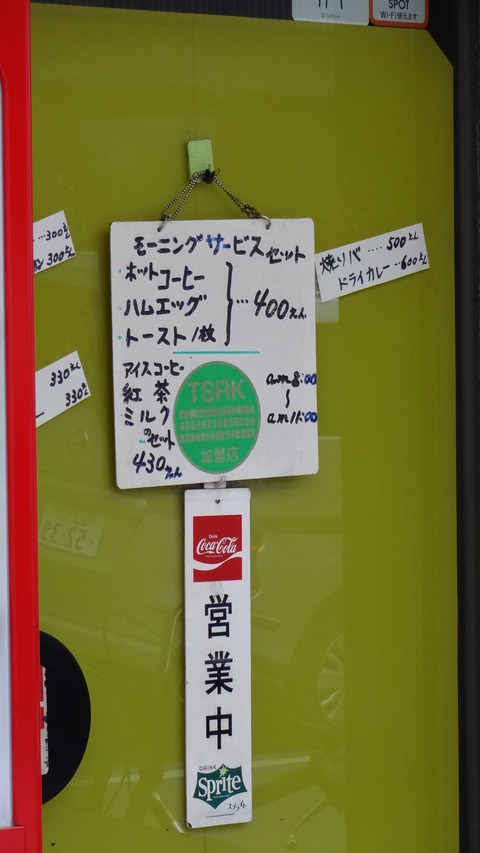 SPOT
Wi-Fi使えます
モーニングサービスセット
ホットコーヒー
ハムエッグ
トースト1枚
…400えん
アイスコーヒー
紅茶
ミルク
のセット
430えん
am8:00
〜
am11:00
TSRK
加盟店
…300えん
300えん
330えん
330えん
焼ソバ ‥‥ 500えん
ドライカレー …600えん
52-39
DRINK
Coca-Cola
営業中
DRINK
Sprite
スプライト